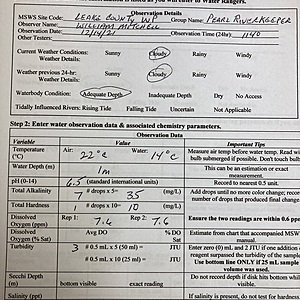 Observation Details
MSWS Site Code: LEAKE COUNTY W.P. Group Name: PEARL RIVERKEEPER
Observer Name: WILLIAM MITCHELL
Observation Date: 12/14/21 Observation Time (24hr): 1140
Other Testers:
Current Weather Conditions: Sunny Cloudy Rainy Windy
Weather Details:
Weather previous 24-hr: Sunny Cloudy Rainy Windy
Weather Details:
Waterbody Condition: Adequate Depth Inadequate Depth Dry No Access
Tidally Influenced Rivers: Rising Tide Falling Tide Uncertain Not Applicable
Step 2: Enter water observation data & associated chemistry parameters.
Observation Data
Variable Value Important Tips
Temperature (°C) Air: 22°C Water: 14°C Measure air temp before water temp. Read wi
bulb submerged if possible. Don't touch bulb
Water Depth (m) 1m This can be an estimation or exact
measurement.
pH (0-14) 6.5 (standard international units) Record to nearest 0.5 unit.
Total Alkalinity 7 # drops x 5= 35 (mg/L) Add drops until no more color change; recor
Total Hardness # drops x 10= 10 (mg/L) number of drops that produced final change.
Dissolved Oxygen (ppm) Rep 1: 7.4 Rep 2: 7.6 Ensure the two readings are within 0.6 ppm
Dissolved Oxygen (% Sat) Avg DO % DO Sat Estimate from chart that accompanied MSW
manual.
Turbidity 3 # 0.5 mL x 5 (50 ml) = JTU Enter zero (0) mL and 2 JTU if one addition
# 0.5 mL x 10 (25 ml) = JTU reagent surpassed the turbidity of the sample
Use bottom line ONLY if 25 mL sample
volume was used.
Secchi Depth (m) bottom visible exact reading Do not record depth if disk hits bottom while
visible.
Salinity (ppt) If salinity is present, do not test for hardness